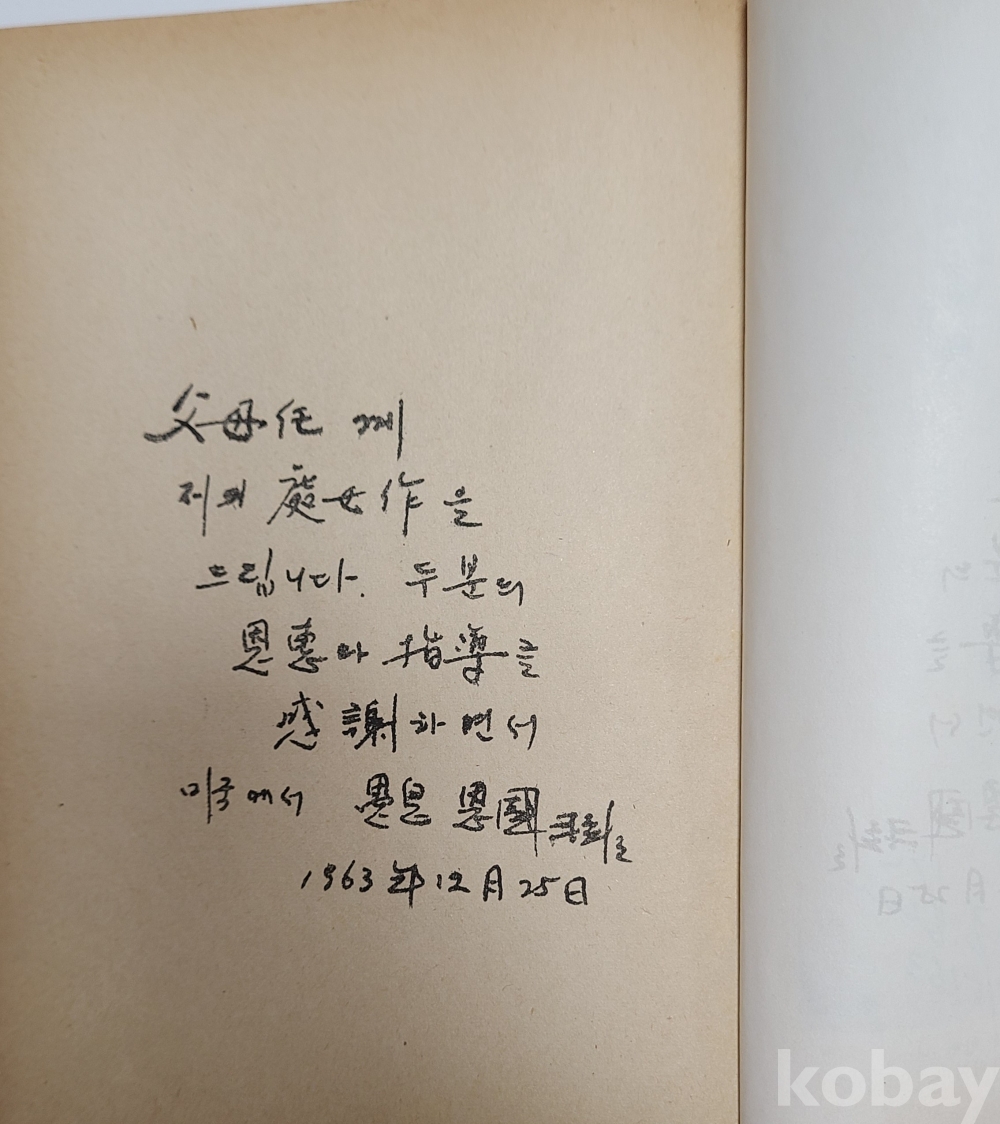 父母任께
저의 處女作을
드립니다. 두분의
恩惠와 指導를
感謝하면서
미국에서 恩國
1963年 12月 25日
kobay